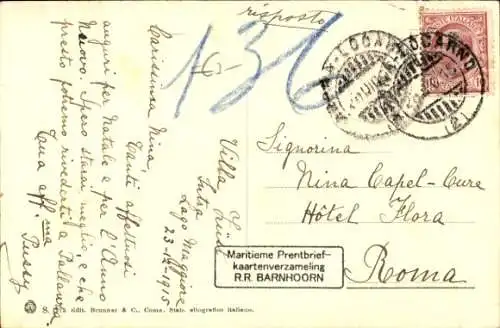 risposto
136
Villa Lina
Intra
Lago Maggiore
23-12-1915
Carissima Nina,
Tanti affettuosi
auguri per Natale e per l'Anno
Nuovo. Spero starai meglio, e che
presto potremo rivederti a Pallanza
Tua aff.ma
Pussy
LOCARNO
LOCARNO
(2)
POSTE ITALIANE
10
Signorina
Nina Capel-Cure
Hôtel Flora
Roma
Maritieme Prentbrief-
kaartenverzameling
R.R. BARNHOORN
edit. Brunner & C., Como. Stab. eliografico italiano.